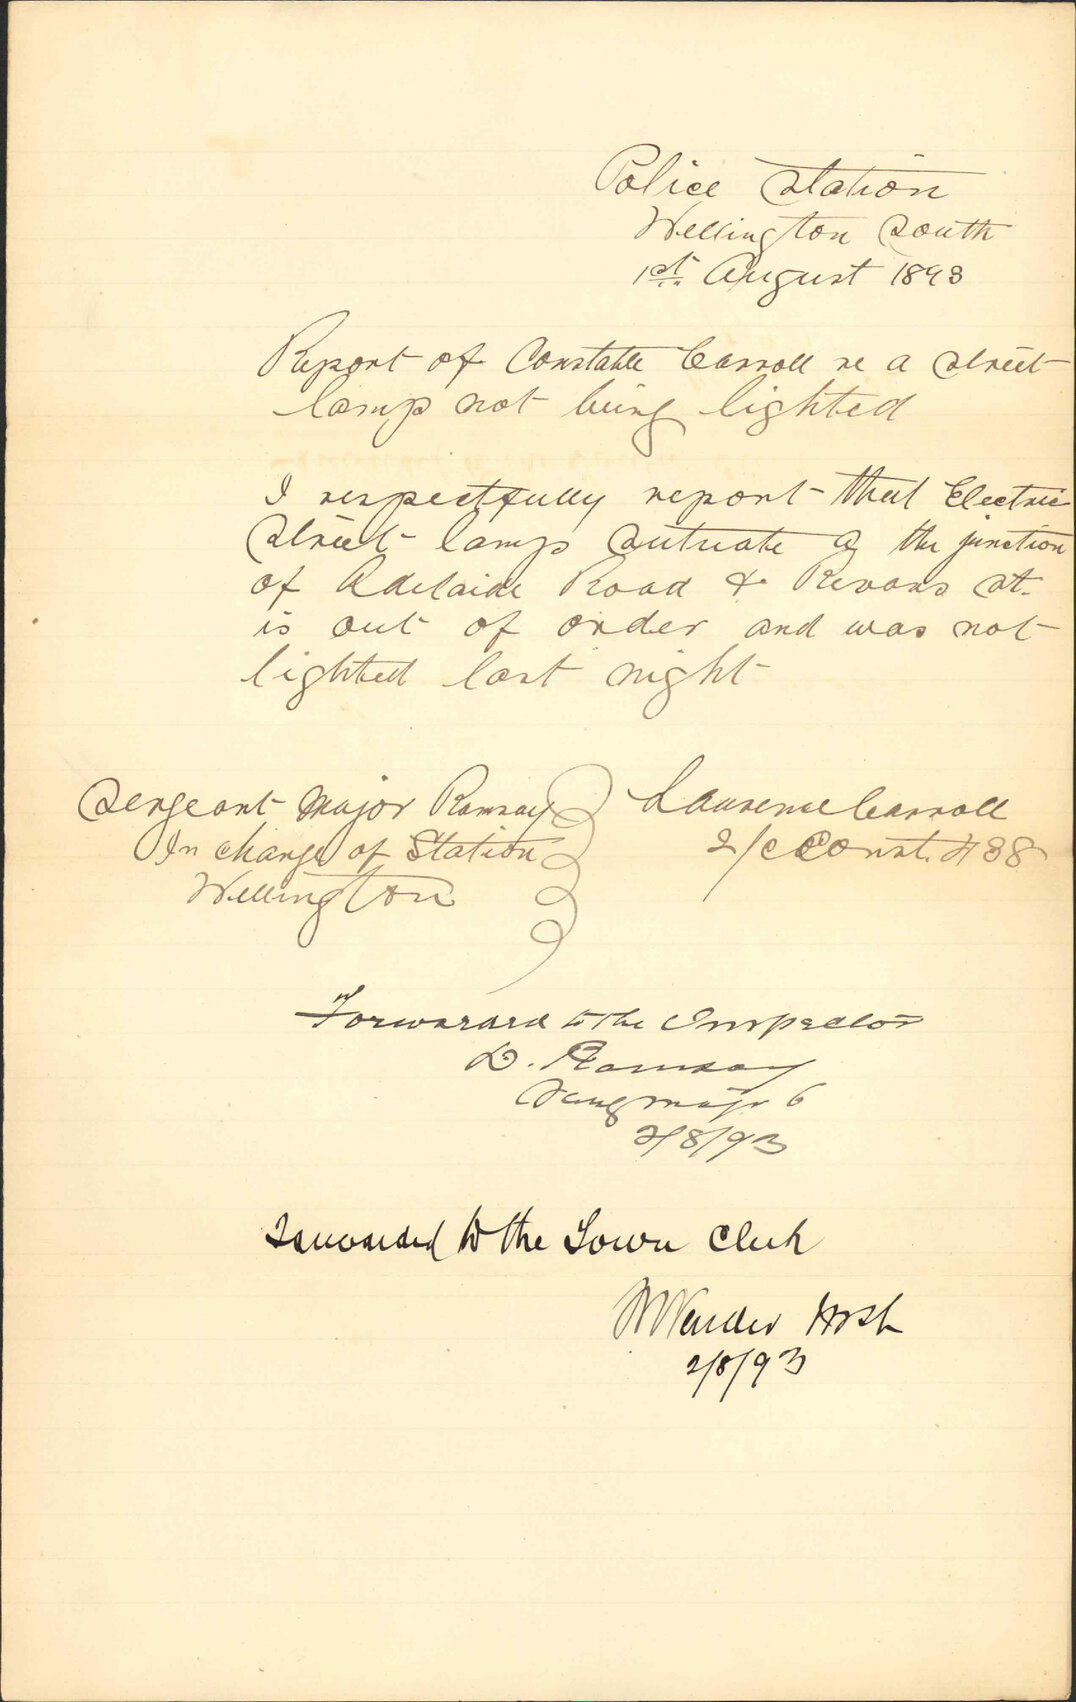 Police Station
Wellington South
1st August 1893
Report of Constable Carroll re a street
lamp not being lighted
I respectfully report that Electric
street lamp situate @ the junction
of Adelaide Road & Revans st.
is out of order and was not
lighted last night
Sergeant Major Ramsay
In charge of Station
Wellington
Laurence Carroll
2/C Const. 488
Forwarard to the Inspector
D. Ramsay
Sergt Major 6
2/8/93
Forwarded to the Town Clerk
2/8/93